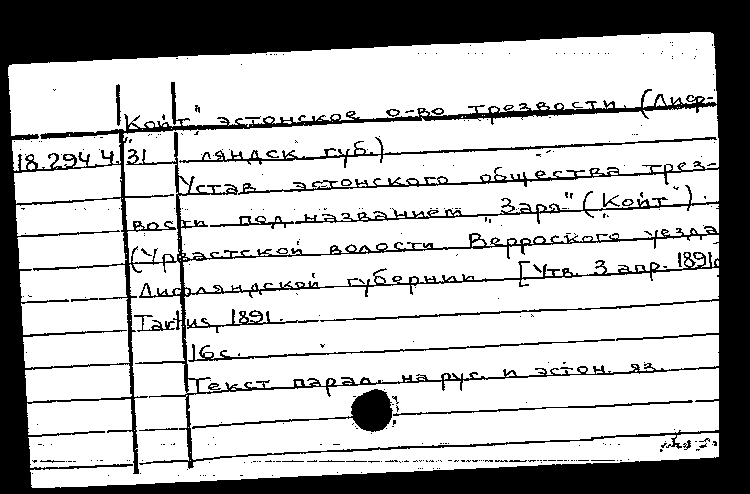 "Койт", эстонское о-во трезвости. (Лиф-
18.294.4.31 ляндск. губ.)
Устав эстонского общества трез-
вости под названием "Заря" ("Койт").
(Урвастской волости Верроского уезда
Лифляндской губернии. [Утв. 3 апр. 1891г
Tartus, 1891.
16 с.
Текст парал. на рус. и эстон. яз.